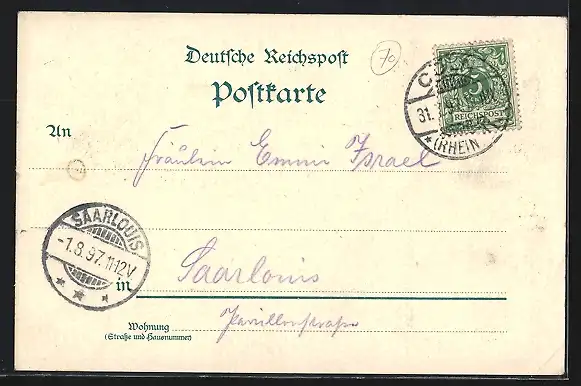 Deutsche Reichspost
70
Postkarte
5
REICHSPOST
31.
(RHEIN
An
Fräulein Emmi Israel
SAARLOUIS
-1.8.97.11-12V.
in Saarlouis
Wohnung
(Straße und Hausnummer)